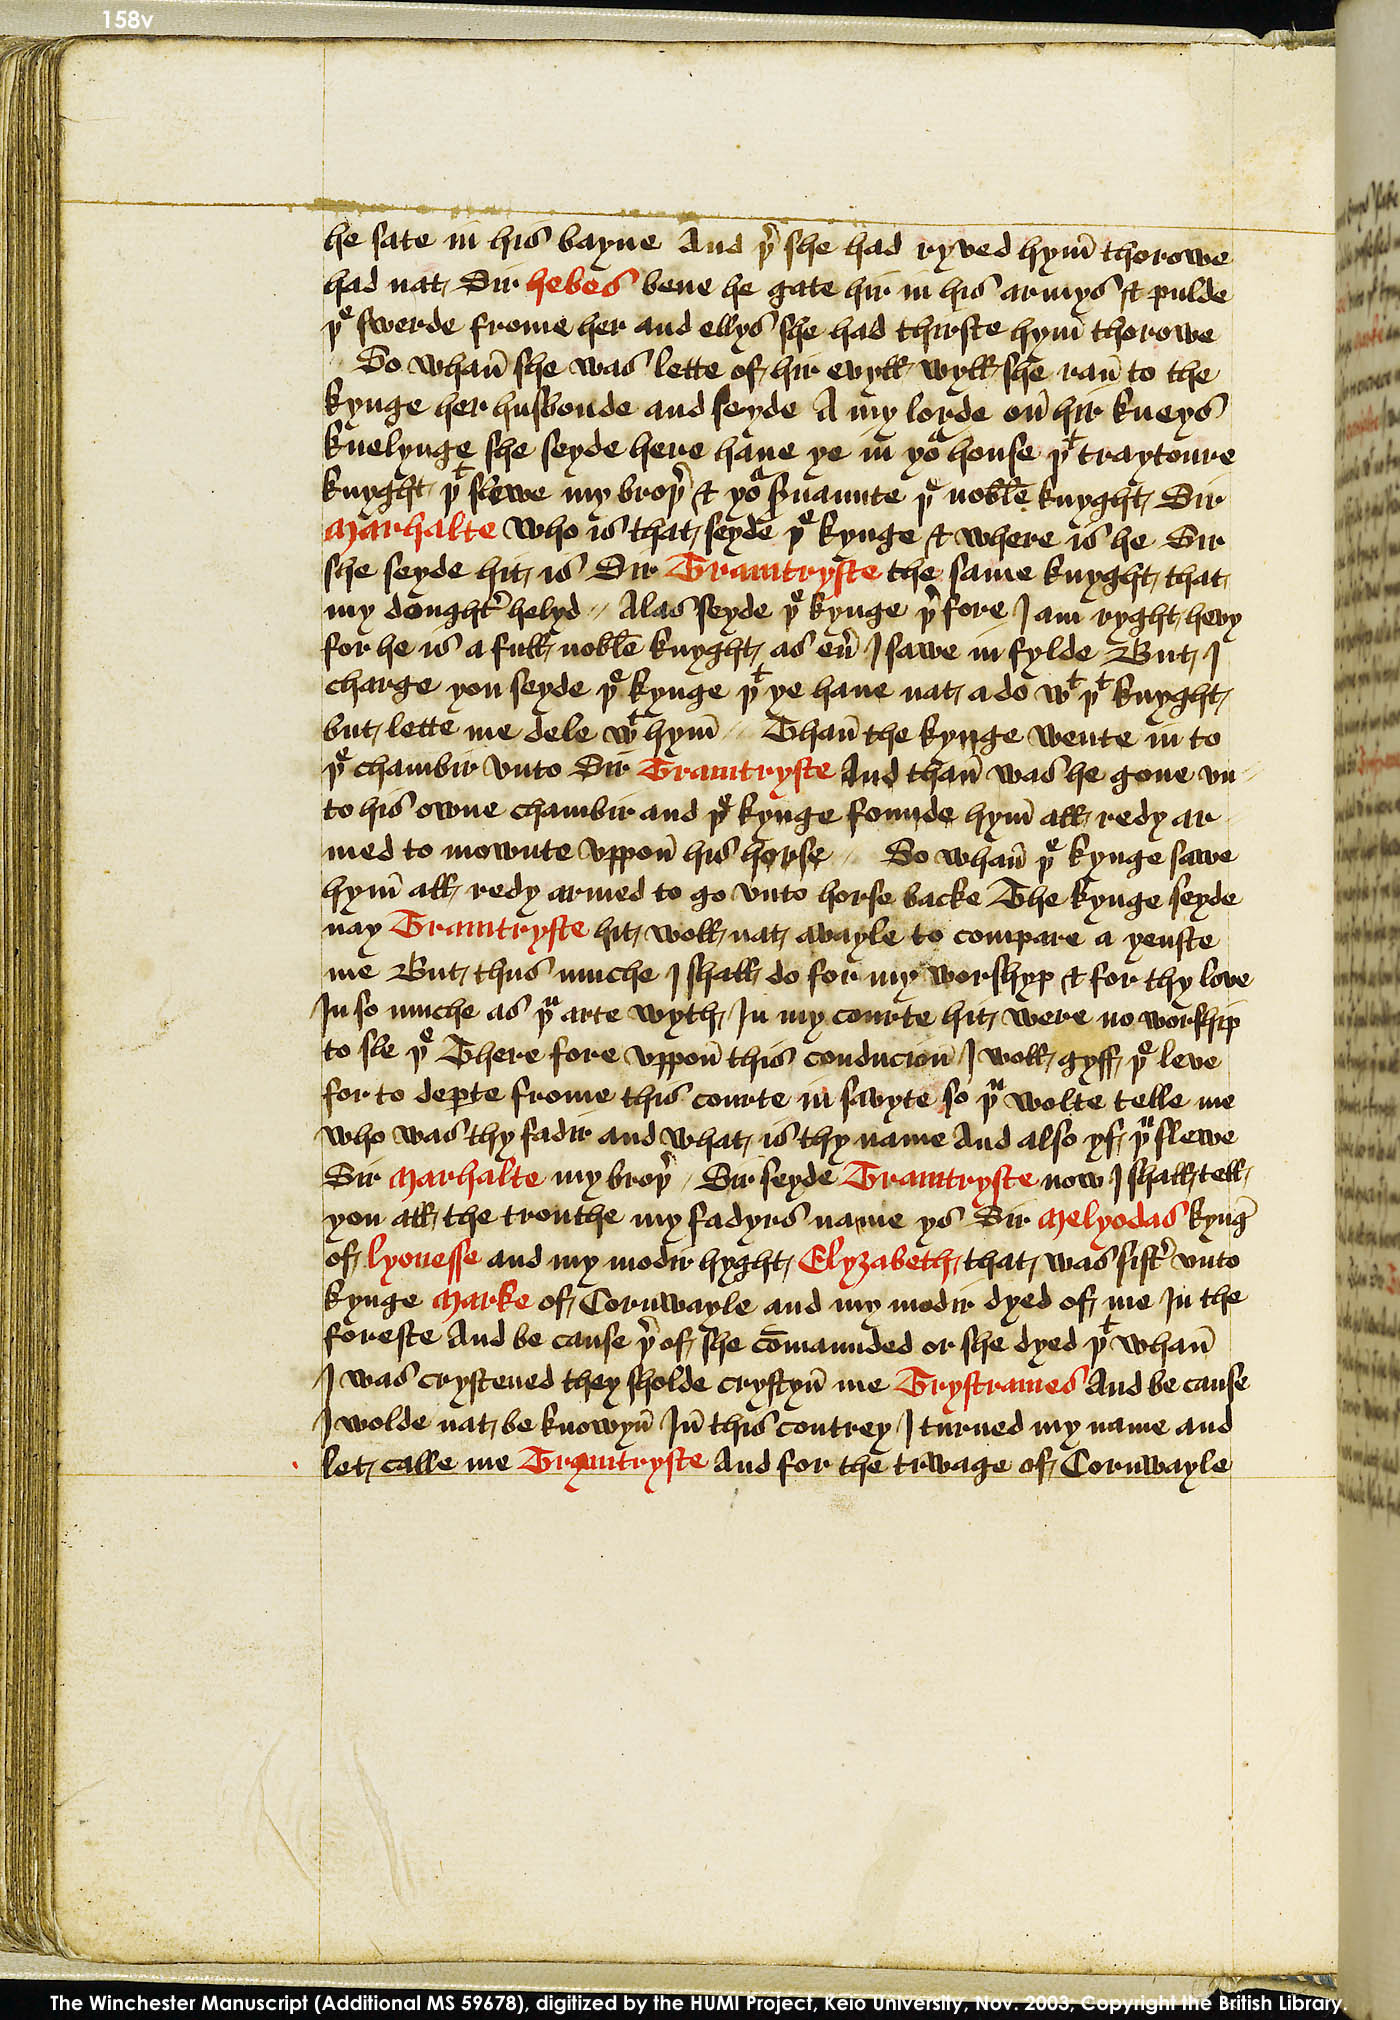 158v
he sate in his bayne And þ̉ she had ryved hym̄ thorowe
had nat Sir hebes bene he gate hir in his armys & pulde
þᵉ swerde frome her and ellys she had thirste hym̄ thorowe
〃 So whan̄ she was lette of hir evyll wyll she ran̄ to the
kynge her husbonde and seyde A my lorde on̄ hir kneys
knelynge she seyde here haue ye in yoᵘ house þᵗ traytoure
knyght þᵗ slewe my broþ̉ & yoᵘ s̉uaunte þᵉ noble knyght Sir
Marhalte who is that seyde þᵉ kynge & where is he Sir
sche seyde hit is Sir Tramtryste the same knyght that
my dought̉ helyd 〃 Alas seyde þᵉ kynge þ̉fore I am ryght hevy
for he is a full noble knyght as eủ I sawe in fylde But I
charge you seyde þᵉ kynge þᵗ ye haue nat a do wᵗ þᵗ knyght
but lette me dele wᵗ hym̄ 〃 Than̄ the kynge wente in to
þᵉ chambir vnto Sir Tramtryste And than̄ was he gone vn〃
to his owne chambir and þᵉ kynge founde hym̄ all redy ar
med to mownte vppon̄ his horse 〃 So whan̄ þᵉ kynge sawe
hym̄ all redy armed to go vnto horse backe The kynge seyde
nay Tramtryste hit woll nat avayle to compare a yenste
me But thus muche I shall do for my worshyp & for thy love
In so muche as þᵘ arte wyth In my courte hit were no worship
to sle þᵉ There fore vppon̄ this conducion̄ I woll gyff þᵉ leve
for to dep̱te frome this courte in savyte so þᵘ wolte telle me
who was thy fadir and what is thy name And also yf þᵘ slewe
Sir Marhalte my broþ̉ 〃 Sir seyde Tramtryste now I shall tell
you all the trouthe my fadyrs name ys Sir Melyodas kyng̉
of lyonesse and my modir hyght Elyzabeth that was sist̉ vnto
kynge Marke of Cornwayle and my modir dyed of me In the
foreste And be cause þ̉ of she cōmaunded or she dyed þᵗ whan̄
I was crystened they sholde crystyn̄ me Trystrames And be cause
I wolde nat be knowyn̄ In̄ this contrey I turned my name and
let calle me Tramtryste And for the trwage of Cornwayle
The Winchester Manuscript (Additional MS 59678), digitized by the HUMI Project, Keio University, Nov. 2003; Copyright the British Library.